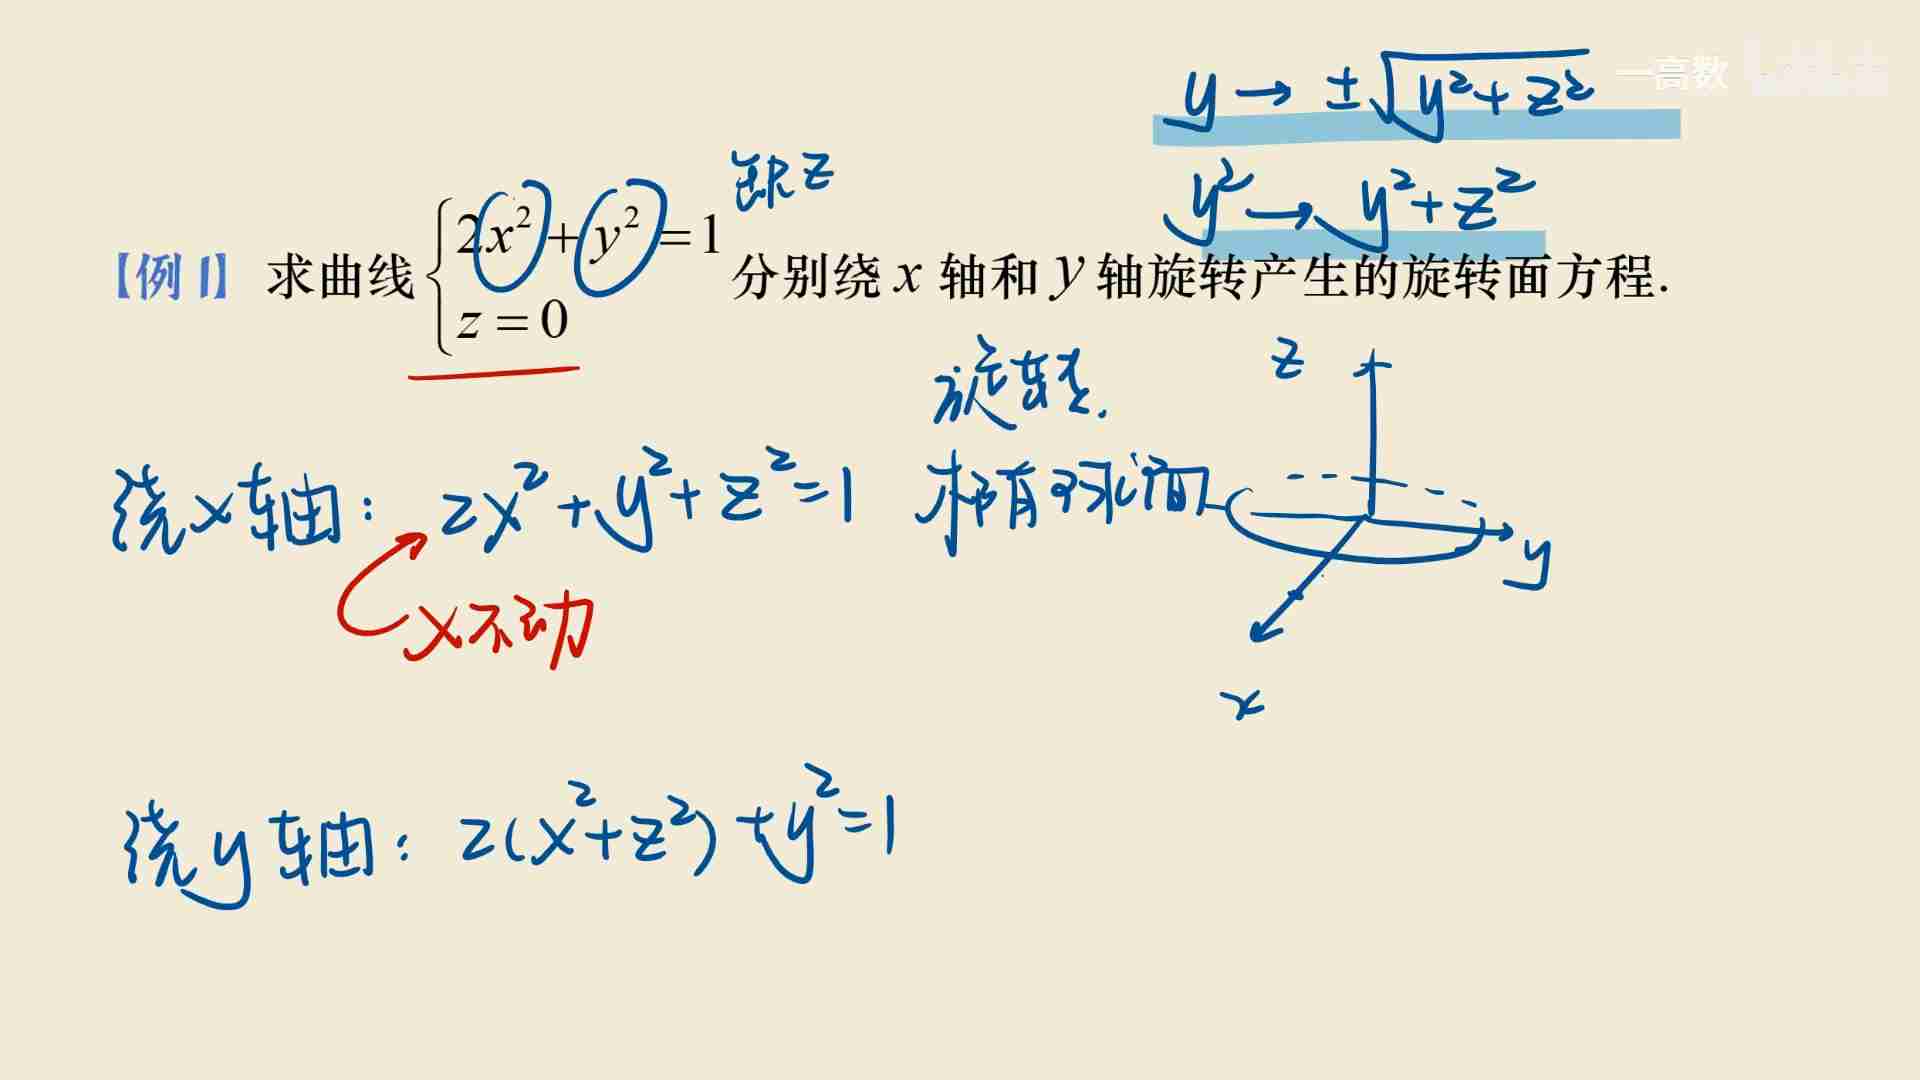 一高数
y→±√(y²+z²)
y²→y²+z²
缺z
【例1】 求曲线{2x²+y²=1 z=0 分别绕 x 轴和 y 轴旋转产生的旋转面方程.
旋转
z
绕x轴: 2x²+y²+z²=1
椭球面
y
x不动
x
绕y轴: 2(x²+z²)+y²=1